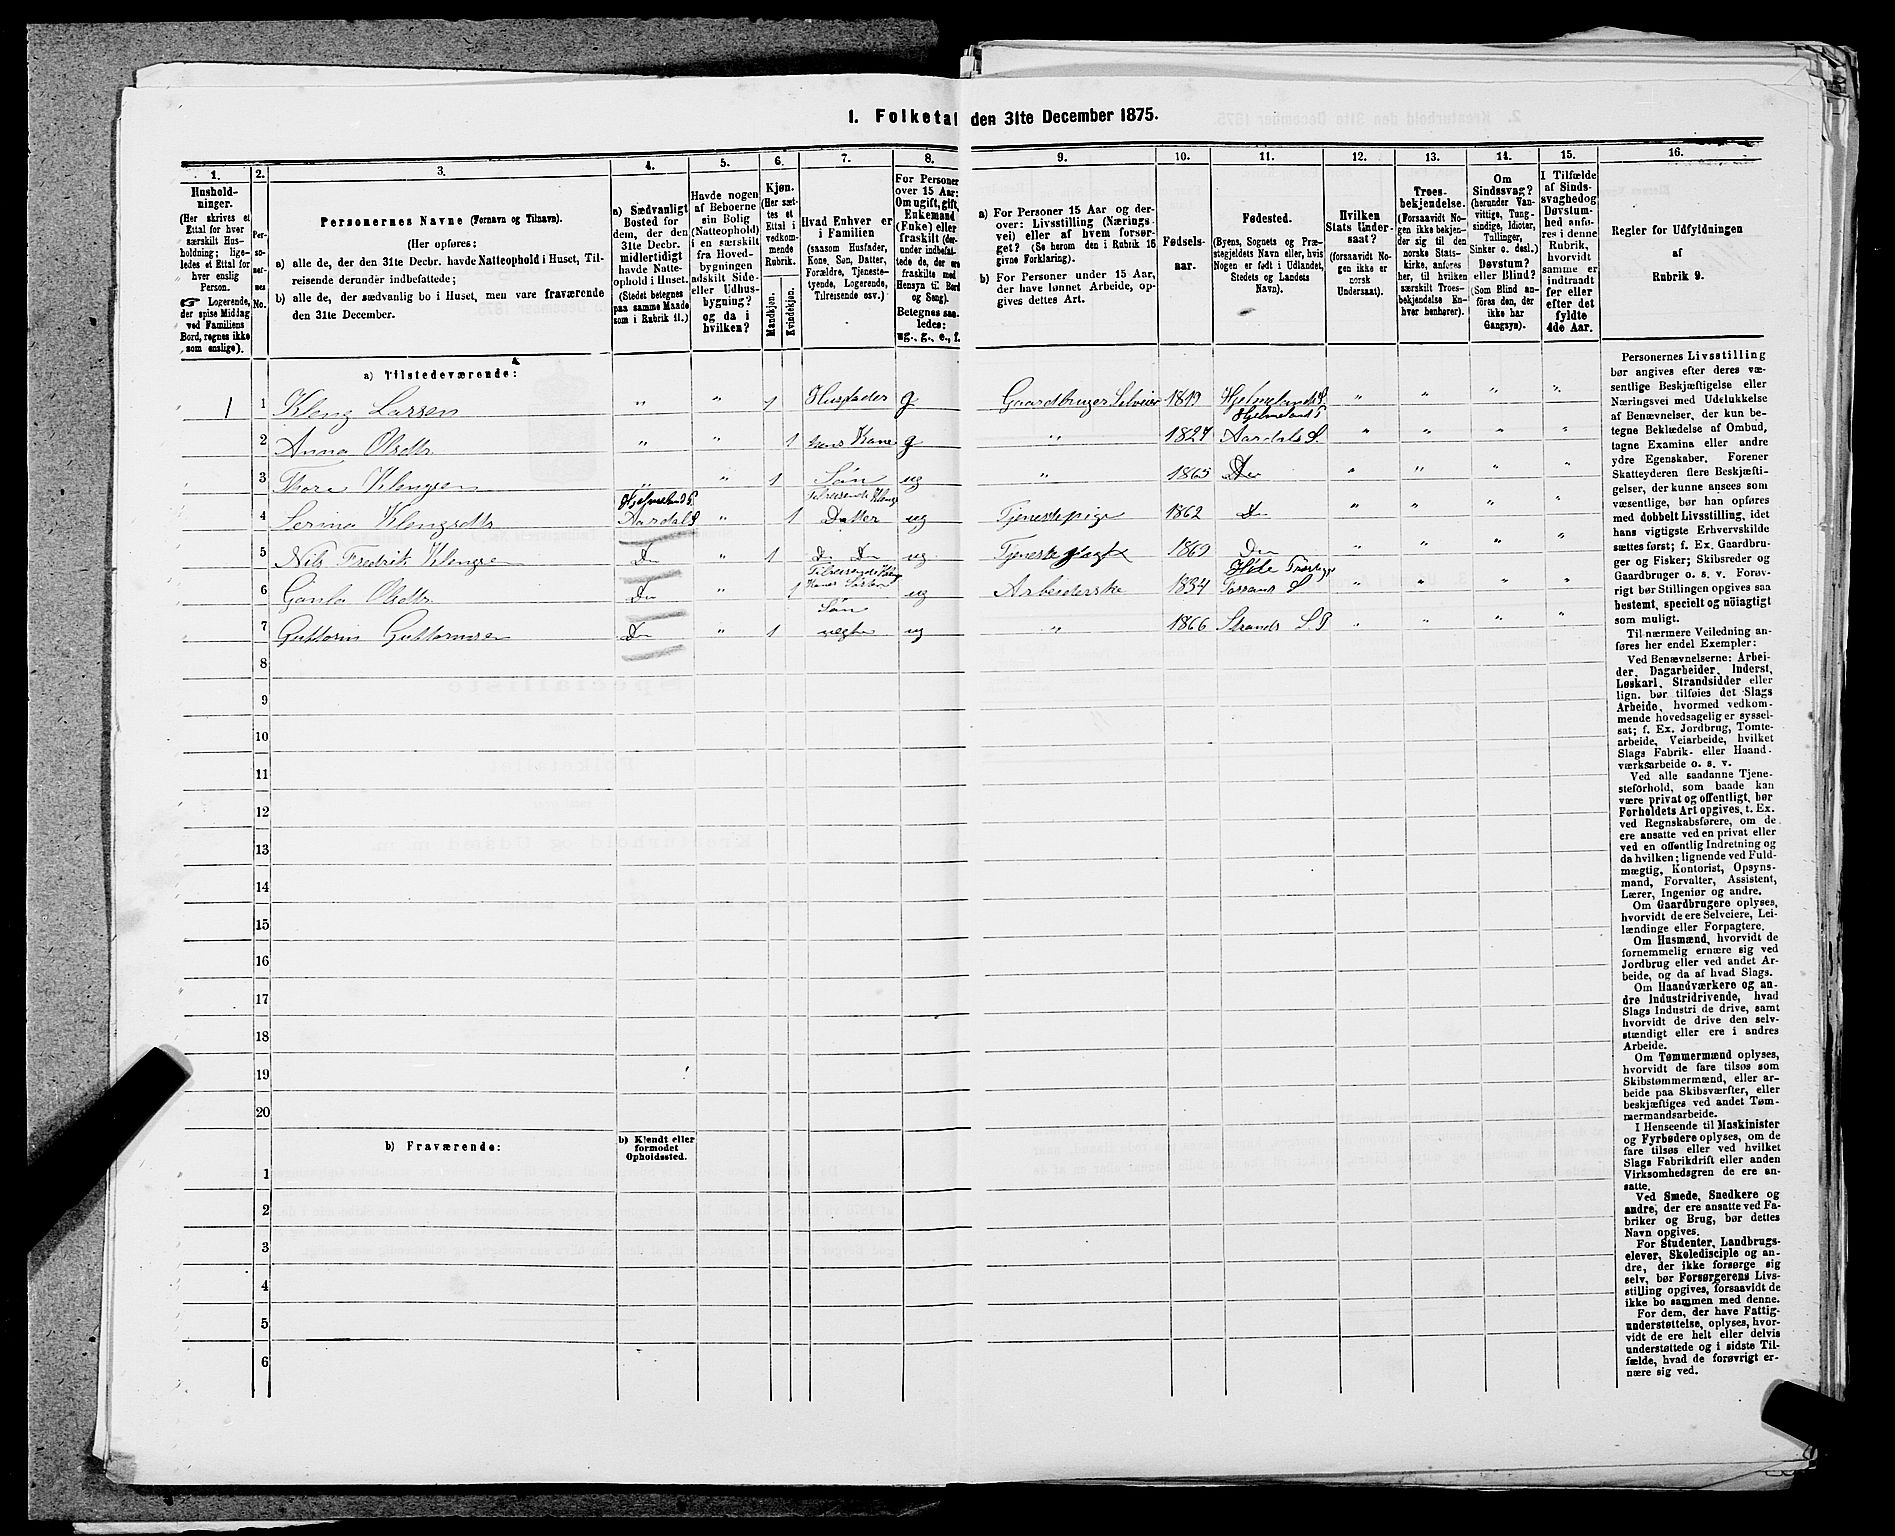 1. Folketal den 31te December 1875.
1.
Hushold-
ninger.
(Her skrives et
Ettal for hver
særskilt Hus-
holdning; lige-
ledes et Ettal for
hver enslig
Person.
Logerende,
der spise Middag
ved Familiens
Bord, regnes ikke
som enslige).
2.
Per-
soner-
nes
No.
3.
Personernes Navne (Fornavn og Tilnavn).
(Her opføres:
a) alle de, der den 31te Decbr. havde Natteophold i Huset, Til-
reisende derunder indbefattede;
b) alle de, der sædvanlig bo i Huset, men vare fraværende
den 31te December.
4.
a) Sædvanligt
Bosted for
dem, der den
31te Decbr.
midlertidigt
havde Natte-
ophold i Huset.
(Stedet betegnes
paa samme Maade
som i Rubrik 11.)
5.
Havde nogen
af Beboerne
sin Bolig
(Natteophold)
i en særskilt
fra Hoved-
bygningen
adskilt Side-
eller Udhus-
bygning?
og da i
hvilken?
6.
Kjøn.
(Her sæt-
tes et
Ettal i
vedkom-
mende
Rubrik.
Mandkjøn.
Kvindekjøn.
7.
Hvad Enhver er
i Familien
(saasom Husfader,
Kone, Søn, Datter,
Forældre, Tjeneste-
tyende, Logerende,
Tilreisende osv.)
8.
For Personer
over 15 Aar:
Om ugift, gift,
Enkemand
(Enke) eller
fraskilt (der-
under indbefat-
tede de, der ere
fraskilte med
Hensyn til Bord
og Seng).
Betegnes saa-
ledes:
ug., g., e., f.
9.
a) For Personer 15 Aar og der-
over: Livsstilling (Nærings-
vei) eller af hvem forsør-
get? (Se herom den i Rubrik 16
givne Forklaring).
b) For Personer under 15 Aar,
der have lønnet Arbeide, op-
gives dettes Art.
10.
Fødsels-
aar.
11.
Fødested.
(Byens, Sognets og Præ-
stegjeldets Navn eller, hvis
Nogen er født i Udlandet,
Stedets og Landets
Navn.)
12.
Hvilken
Stats Under-
saat?
(forsaavidt No-
gen ikke er
norsk
Undersaat).
13.
Troes-
bekjendelse.
(Forsaavidt No-
gen ikke bekjen-
der sig til den
norske Stats-
kirke, anføres
her, til hvilken
særskilt Troes-
bekjendelse En-
hver henhører).
14.
Om
Sindssvag?
(herunder Van-
vittige, Tung-
sindige, Idioter,
Tullinger,
Sinker o. desl.)
Døvstum?
eller Blind?
(Som Blind an-
føres den, der
ikke har
Gangsyn).
15.
I Tilfælde
af Sinds-
svaghed og
Døvstum-
hed anfø-
res i denne
Rubrik,
hvorvidt
samme er
indtraadt
før eller
efter det
fyldte
4de Aar.
16.
Regler for Udfyldningen
af
Rubrik 9.
a) Tilstedeværende:
1 1 Kleng Larsen " " 1 Husfader g Gaardbruger Selveier 1819 Hjelmelands S. " " " "
Hjelmeland P
2 Anna Olsdtr " " 1 hans Kone g " 1827 Aardals S. " " " "
3 Thore Klengsen " " 1 Søn ug " 1865 Do " " " "
Hjelmeland P. Tilreisende Klengs
4 Serina Klengsdtr Aardal S " 1 Datter ug Tjenestepige 1862 Do " " " "
5 Nils Fredrik Klengsen Do " 1 Do Do ug Tjeneste 1860 Do " " " "
Tilreisende
6 Olsdtr Do " 1 Kones Søster ug Arbeiderske 1834 S " " " "
Søn
7 Guttorm Guttormsen Do " 1 ægte ug " 1866 Strands S. P " " " "
8
9
10
11
12
13
14
15
16
17
18
19
20
b) Fraværende:
b) Kjendt eller
formodet
Opholdssted.
1
2
3
4
5
6
Personernes Livsstilling
bør angives efter deres væ-
sentlige Beskjæftigelse eller
Næringsvei med Udelukkelse
af Benævnelser, der kun be-
tegne Beklædelse af Ombud,
tagne Examina eller andre
ydre Egenskaber. Forener
Skatteyderen flere Beskjæfti-
gelser, der kunne ansees som
væsentlige, bør han opføres
med dobbelt Livsstilling, idet
hans vigtigste Erhvervskilde
sættes først; f. Ex. Gaardbru-
ger og Fisker; Skibsreder og
Gaardbruger o. s. v. Forøv-
rigt bør Stillingen opgives saa
bestemt, specielt og nøiagtigt
som muligt.
Til nærmere Veiledning an-
føres her endel Exempler:
Ved Benævnelserne: Arbei-
der, Dagarbeider, Inderst,
Løskarl, Strandsidder eller
lign. bør tilføies det Slags
Arbeide, hvormed vedkom-
mende hovedsagelig er syssel-
sat; f. Ex. Jordbrug, Tomte-
arbeide, Veiarbeide, hvilket
Slags Fabrik- eller Haand-
værksarbeide o. s. v.
Ved alle saadanne Tjene-
steforhold, som baade kan
være privat og offentligt, bør
Forholdets Art opgives, t. Ex.
ved Regnskabsførere, om de
ere ansatte ved en privat eller
ved en offentlig Indretning og
da hvilken; lignende ved Fuld-
mægtig, Kontorist, Opsyns-
mand, Forvalter, Assistent,
Lærer, Ingeniør og andre.
Om Gaardbrugere oplyses,
hvorvidt de ere Selveiere, Lei-
lændinge eller Forpagtere.
Om Husmænd, hvorvidt de
fornemmelig ernære sig ved
Jordbrug eller ved andet Ar-
beide, og da af hvad Slags.
Om Haandværkere og an-
dre Industridrivende, hvad
Slags Industri de drive, samt
hvorvidt de drive den selv-
stændigt eller ere i andres
Arbeide.
Om Tømmermænd oplyses,
hvorvidt de fare tilsøs som
Skibstømmermænd, eller ar-
beide paa Skibsværfter, eller
beskjæftiges ved andet Tøm-
mermandsarbeide.
I Henseende til Maskinister
og Fyrbødere oplyses, om de
fare tilsøs eller ved hvilket
Slags Fabrikdrift eller anden
Virksomhedsgren de ere an-
satte.
Ved Smede, Snedkere og
andre, der ere ansatte ved Fa-
briker og Brug, bør dettes
Navn opgives.
For Studenter, Landbrugs-
elever, Skoledisciple og an-
dre, der ikke forsørge sig
selv, bør Forsørgerens Livs-
stilling opgives, forsaavidt de
ikke bo sammen med denne.
For dem, der have Fattig-
understøttelse, oplyses, hvor-
vidt de ere helt eller delvis
understøttede og i sidste Til-
fælde, hvad de forøvrigt er-
nære sig ved.